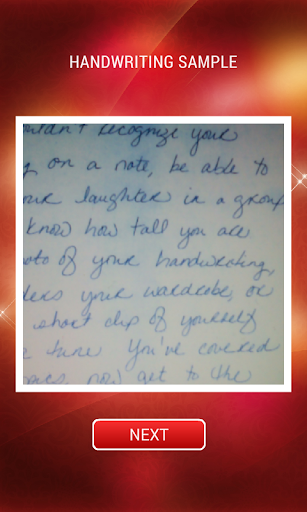 HANDWRITING SAMPLE
recognize your
on a note, be able to
laughter in a group
know how tall you are
of your handwriting,
your wardrobe, or
short clip of yourself
tune You've covered
now get to the
NEXT